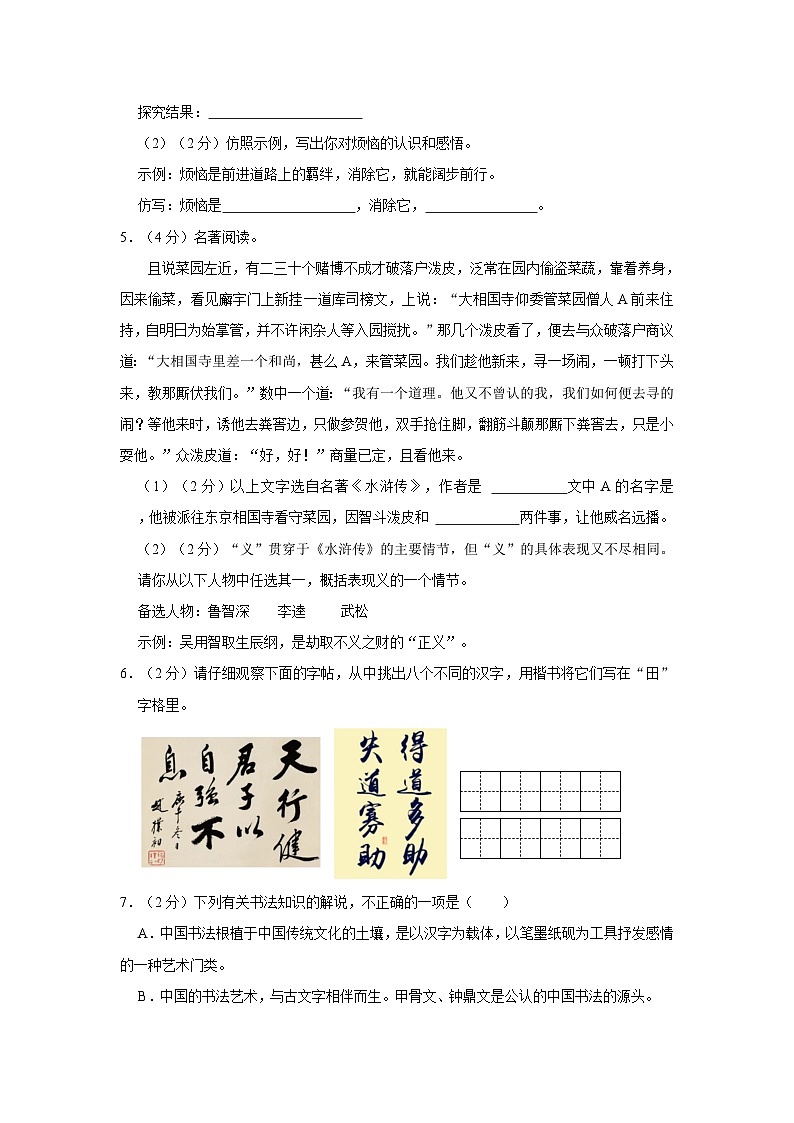 探究结果:
(2)(2分)仿照示例,写出你对烦恼的认识和感悟。
示例:烦恼是前进道路上的羁绊,消除它,就能阔步前行。
仿写:烦恼是 ,消除它, 。
5.(4分)名著阅读。
且说菜园左近,有二三十个赌博不成才破落户泼皮,泛常在园内偷盗菜蔬,靠着养身,
因来偷菜,看见廨宇门上新挂一道库司榜文,上说:“大相国寺仰委管菜园僧人A前来住
持,自明日为始掌管,并不许闲杂人等入园搅扰。”那几个泼皮看了,便去与众破落户商议
道:“大相国寺里差一个和尚,甚么A,来管菜园。我们趁他新来,寻一场闹,一顿打下头
来,教那厮伏我们。”数中一个道:“我有一个道理。他又不曾认的我,我们如何便去寻的
闹?等他来时,诱他去粪窖边,只做参贺他,双手抢住脚,翻筋斗颠那厮下粪窖去,只是小
耍他。”众泼皮道:“好,好!”商量已定,且看他来。
(1)(2分)以上文字选自名著《水浒传》,作者是 文中A的名字是
,他被派往东京相国寺看守菜园,因智斗泼皮和 两件事,让他威名远播。
(2)(2分)“义”贯穿于《水浒传》的主要情节,但“义”的具体表现又不尽相同。
请你从以下人物中任选其一,概括表现义的一个情节。
备选人物:鲁智深 李逵 武松
示例:吴用智取生辰纲,是劫取不义之财的“正义”。
6.(2分)请仔细观察下面的字帖,从中挑出八个不同的汉字,用楷书将它们写在“田”
字格里。
天行健
君子以
自强不
息
庚午冬日
赵朴初
得道多助
失道寡助
7.(2分)下列有关书法知识的解说,不正确的一项是( )
A.中国书法根植于中国传统文化的土壤,是以汉字为载体,以笔墨纸砚为工具抒发感情
的一种艺术门类。
B.中国的书法艺术,与古文字相伴而生。甲骨文、钟鼎文是公认的中国书法的源头。